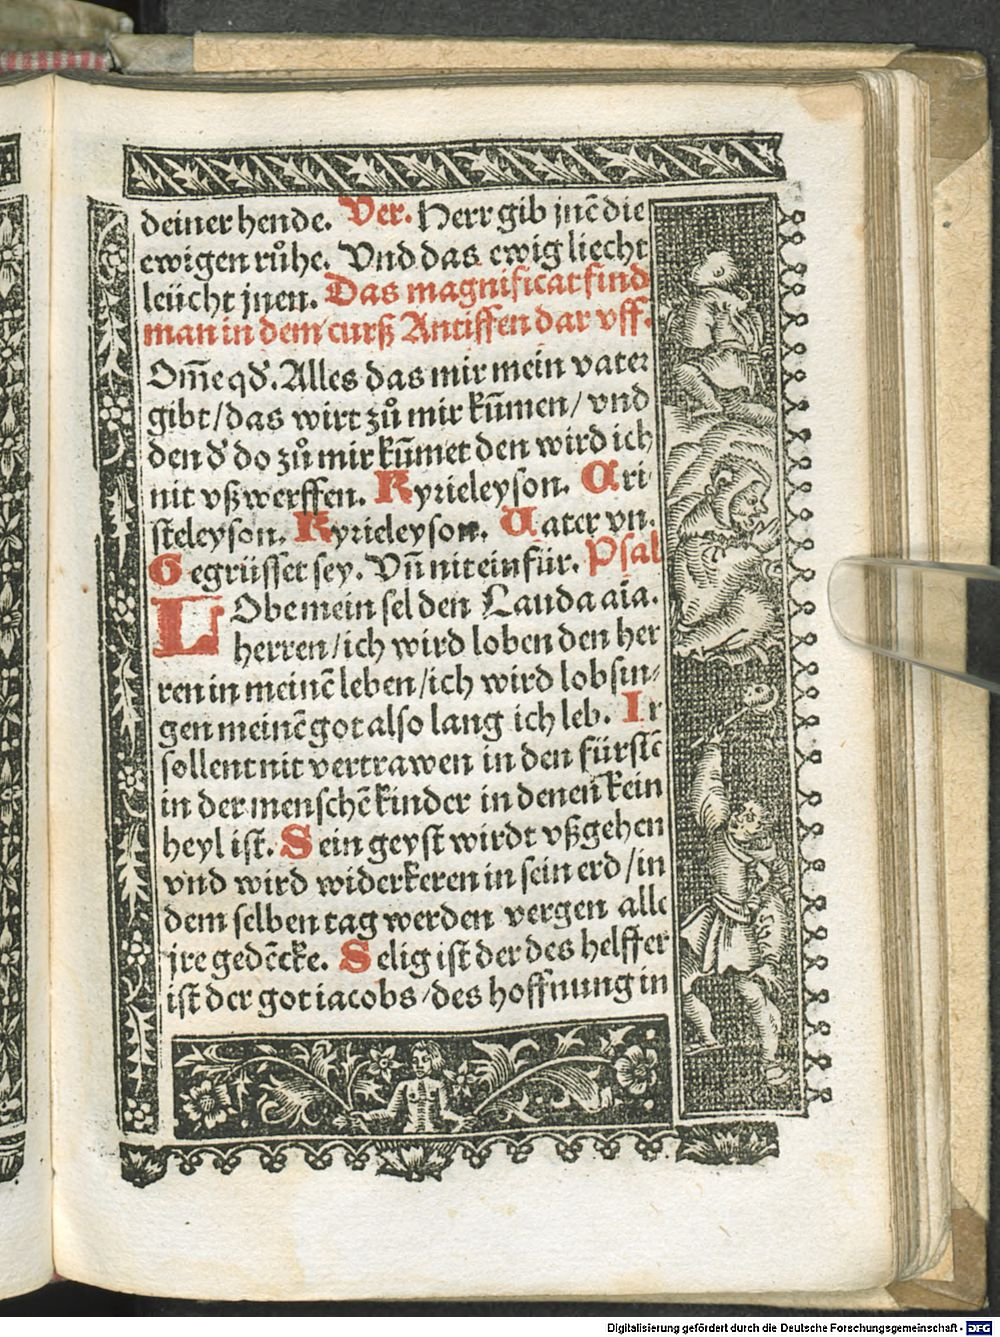 deiner hende. Ver. Herr gib jnē die
ewigen růhe. Vnd das ewig liecht
leücht jnen. Das magnificat find
man in dem curß Antiffen dar vff.
Om̄e qď. Alles das mir mein vater
gibt/das wirt zů mir kūmen/vnd
den ď do zů mir kūmet den wird ich
nit vßwerffen. Kyrieleyson. Cri-
steleyson. Kyrieleyson. Uater vn.
Gegrüsset sey. Vn̄ nit ein für. Psal
LObe mein sel den Lauda aīa.
herren/ich wird loben den her
ren in meinē leben/ich wird lobsin-
gen meinē got also lang ich leb. Ir
sollent nit vertrawen in den fürstē
in der menschē kinder in denen kein
heyl ist. Sein geyst wirdt vßgehen
vnd wird widerkeren in sein erd/in
dem selben tag werden vergen alle
jre gedēcke. Selig ist der des helffer
ist der got iacobs/des hoffnung in
Digitalisierung gefördert durch die Deutsche Forschungsgemeinschaft - DFG